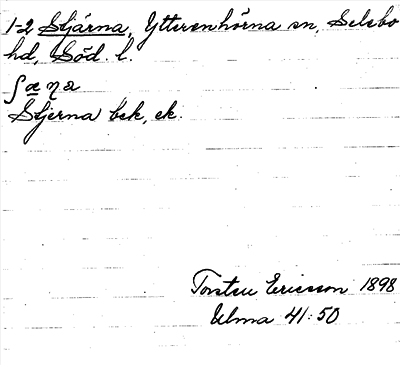 1-2 Stjärna, Ytterenhörna sn, Selebo
hd, Söd. l.
ʃæɳa
Stjerna bek, ek.
Torsten Ericsson 1898
Ulma 41:50